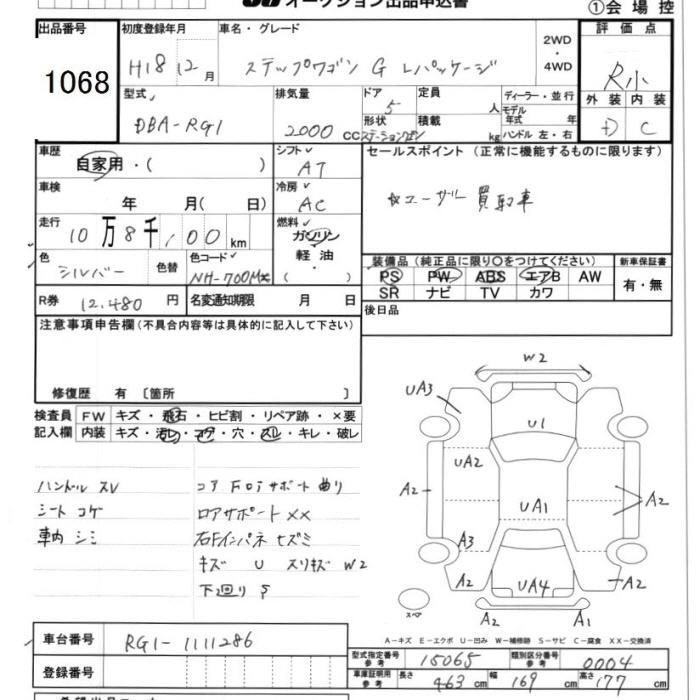 オークション出品申込書
①会場控
出品番号
1068
初度登録年月
H18 12月
車名・グレード
ステップワゴン G Lパッケージ
2WD
・
4WD
評価点
R小
外装 内装
D C
型式
DBA-RG1
排気量
2000 cc
ドア
5
定員
人
形状
ステーションワゴン
積載
kg
ディーラー・並行
モデル
年式 年
ハンドル 左・右
車歴
自家用・( )
シフト
AT
セールスポイント (正常に機能するものに限ります)
☆ユーザー買取車
車検
年 月( 日)
冷房
AC
走行
10万8千,00 km
燃料
ガソリン
軽油
・
( )
色
シルバー
色替
色コード
NH-700M
装備品(純正品に限り〇をつけてください)
PS PW ABS エアB AW
SR ナビ TV カワ
新車保証書
有・無
R券 12,480 円
名変通知期限 月 日
後日品
注意事項申告欄(不具合内容等は具体的に記入して下さい)
修復歴 有 〔箇所 〕
検査員
記入欄
FW キズ・飛石・ヒビ割・リペア跡・×要
内装 キズ・汚レ・コゲ・穴・スレ・キレ・破レ
ハンドル スレ
シート コゲ
車内 シミ
コア F ロア サポート 曲り
ロアサポート XX
右Fインパネ ヒズミ
キズ U スリキズ W2
下回り S
W2
UA3
U1
UA2
A2
UA1
A2
A3
A2
UA4
A2
スペア
A2
A1
A-キズ E-エクボ U-凹み W-補修跡 S-サビ C-腐食 XX-交換済
車台番号
RG1-1111286
登録番号
型式指定番号
参考
15065
類別区分番号
参考
0004
車庫証明用
参考
長さ 463 cm
幅 169 cm
高さ 177 cm